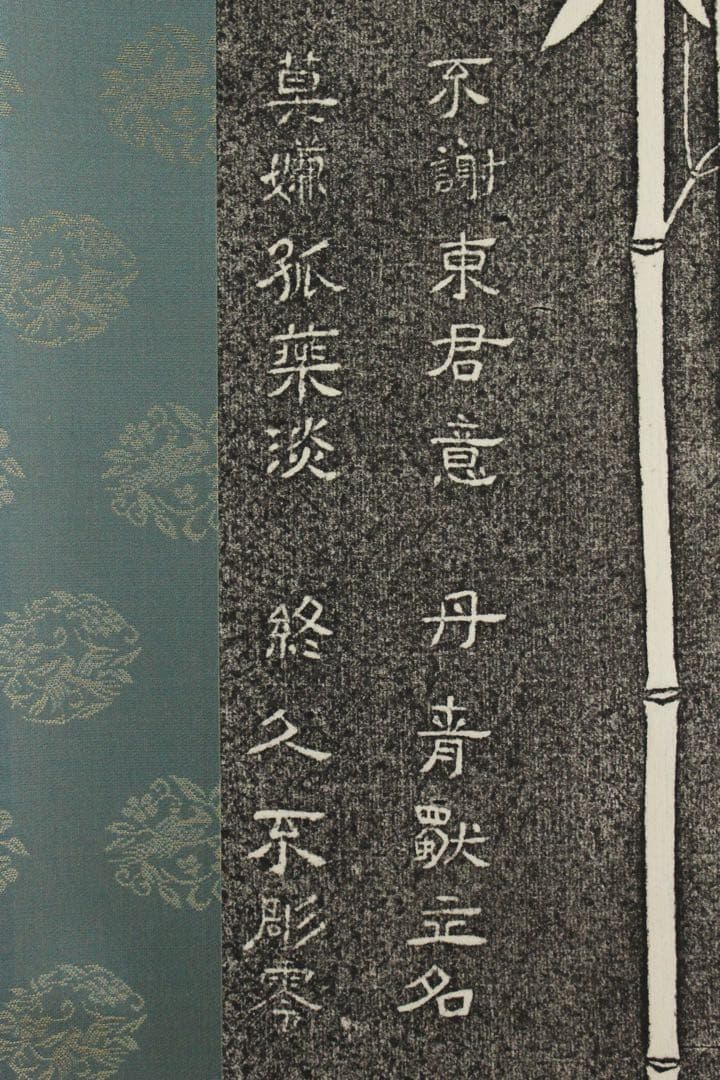 不謝東君意 丹青獨立名
莫嫌孤葉淡 終久不彫零